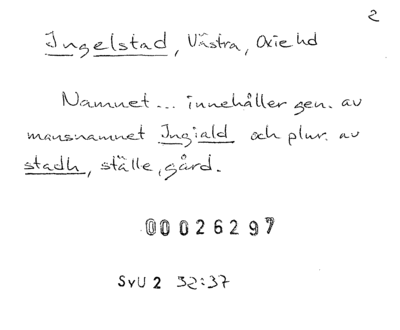 2
Ingelstad, Västra, Oxie hd
Namnet... innehåller gen. av
mansnamnet Ingiald och plur. av
stadh, ställe, gård.
00026297
SvU 2 32:37